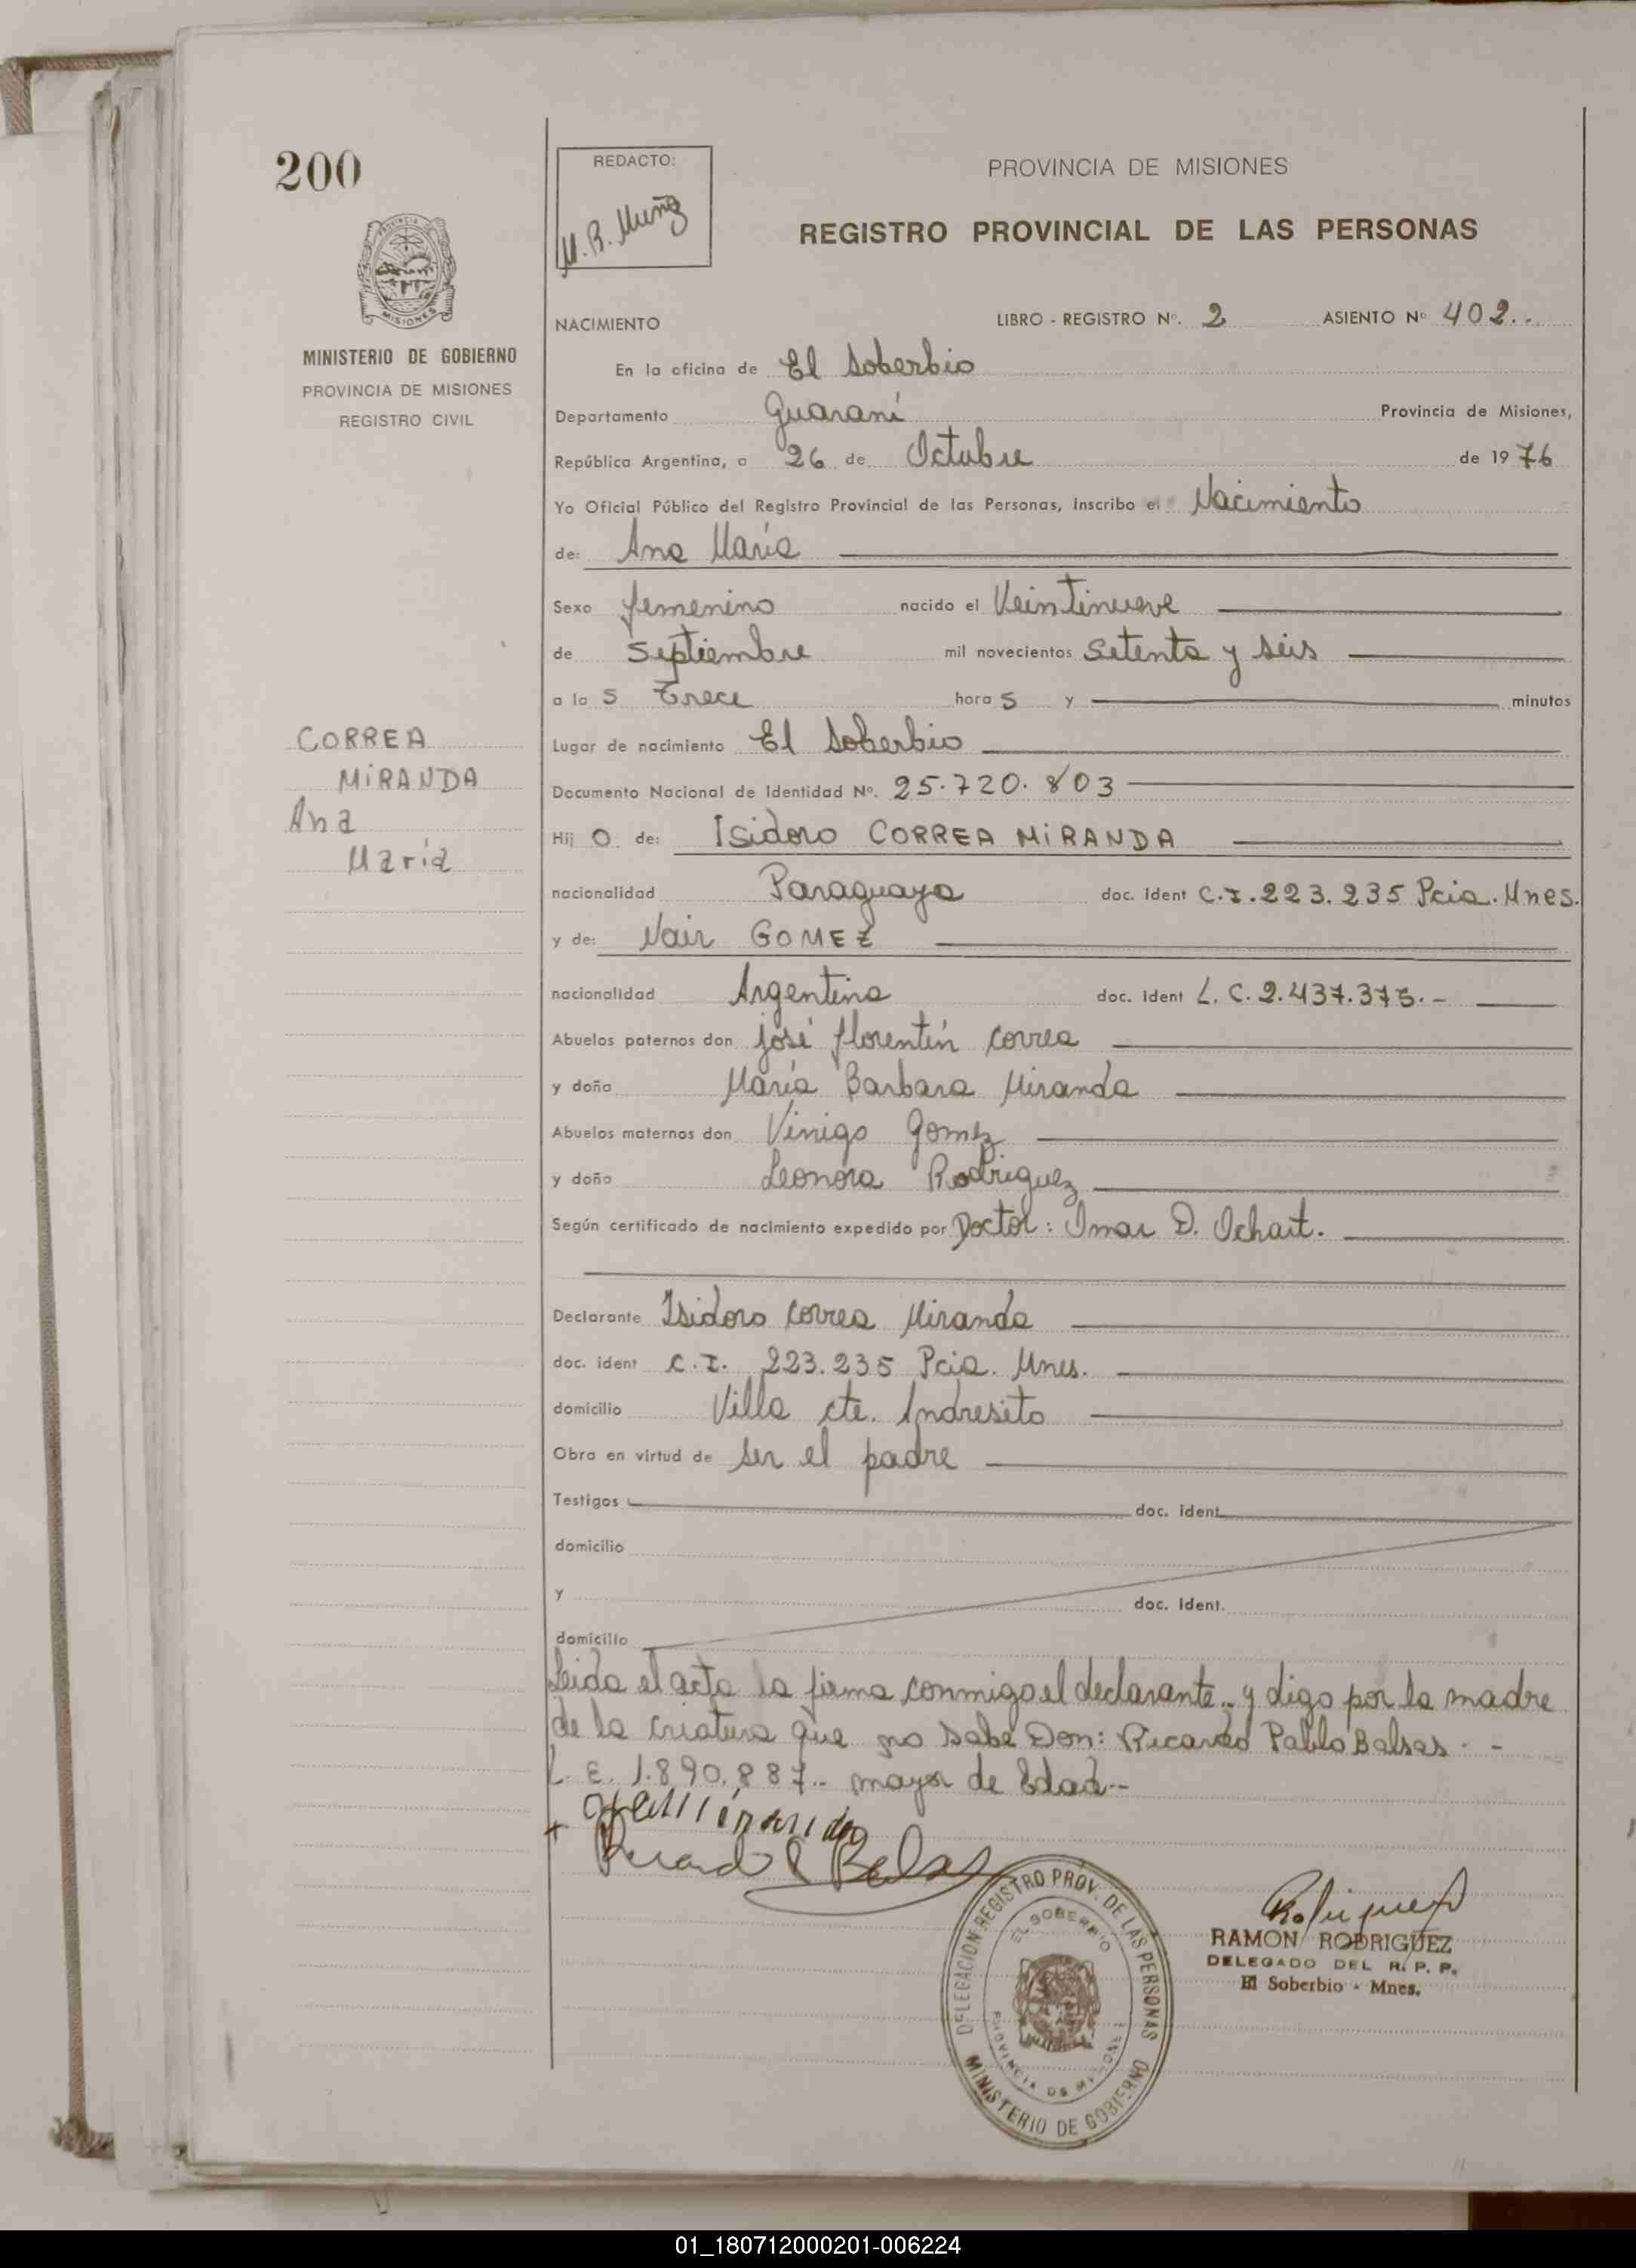 200
REDACTO:
M. R. Muñoz
PROVINCIA DE MISIONES
REGISTRO PROVINCIAL DE LAS PERSONAS
MISIONES
MINISTERIO DE GOBIERNO
PROVINCIA DE MISIONES
REGISTRO CIVIL
NACIMIENTO LIBRO - REGISTRO Nº. 2 ASIENTO Nº 402..
En la oficina de El Soberbio
Departamento Guaraní Provincia de Misiones,
República Argentina, a 26 de Octubre de 1976
Yo Oficial Público del Registro Provincial de las Personas, inscribo el Nacimiento
de: Ana María
Sexo femenino nacido el Veintinueve
de Septiembre mil novecientos Setenta y seis
a la s Trece hora s y minutos
CORREA
MIRANDA
Ana
María
Lugar de nacimiento El Soberbio
Documento Nacional de Identidad Nº. 25.720.803
Hij o de: Isidoro CORREA MIRANDA
nacionalidad Paraguaya doc. Ident C.I. 223.235 Pcia. Mnes.
y de: Nair GOMEZ
nacionalidad Argentina doc. Ident L. C. 2.437.375.-
Abuelos paternos don José Florentín Correa
y doña María Barbara Miranda
Abuelos maternos don Vinigo Gomez
y doña Leonora Rodriguez
Según certificado de nacimiento expedido por Doctor: Omar D. Ochart.
Declarante Isidoro Correa Miranda
doc. ident C.I. 223.235 Pcia. Mnes.
domicilio Villa cte. Andresito
Obra en virtud de ser el padre
Testigos doc. ident
domicilio
y doc. Ident.
domicilio
Leida el acta la firma conmigo el declarante.. y digo por la madre
de la criatura que no sabe Don: Ricardo Pablo Balsas. -
L. E. 1.890.887.. mayor de Edad.-
DELEGACION REGISTRO PROV. DE LAS PERSONAS
EL SOBERBIO
PROVINCIA DE MISIONES
MINISTERIO DE GOBIERNO
RAMON RODRIGUEZ
DELEGADO DEL R. P. P.
El Soberbio - Mnes.
01_180712000201-006224